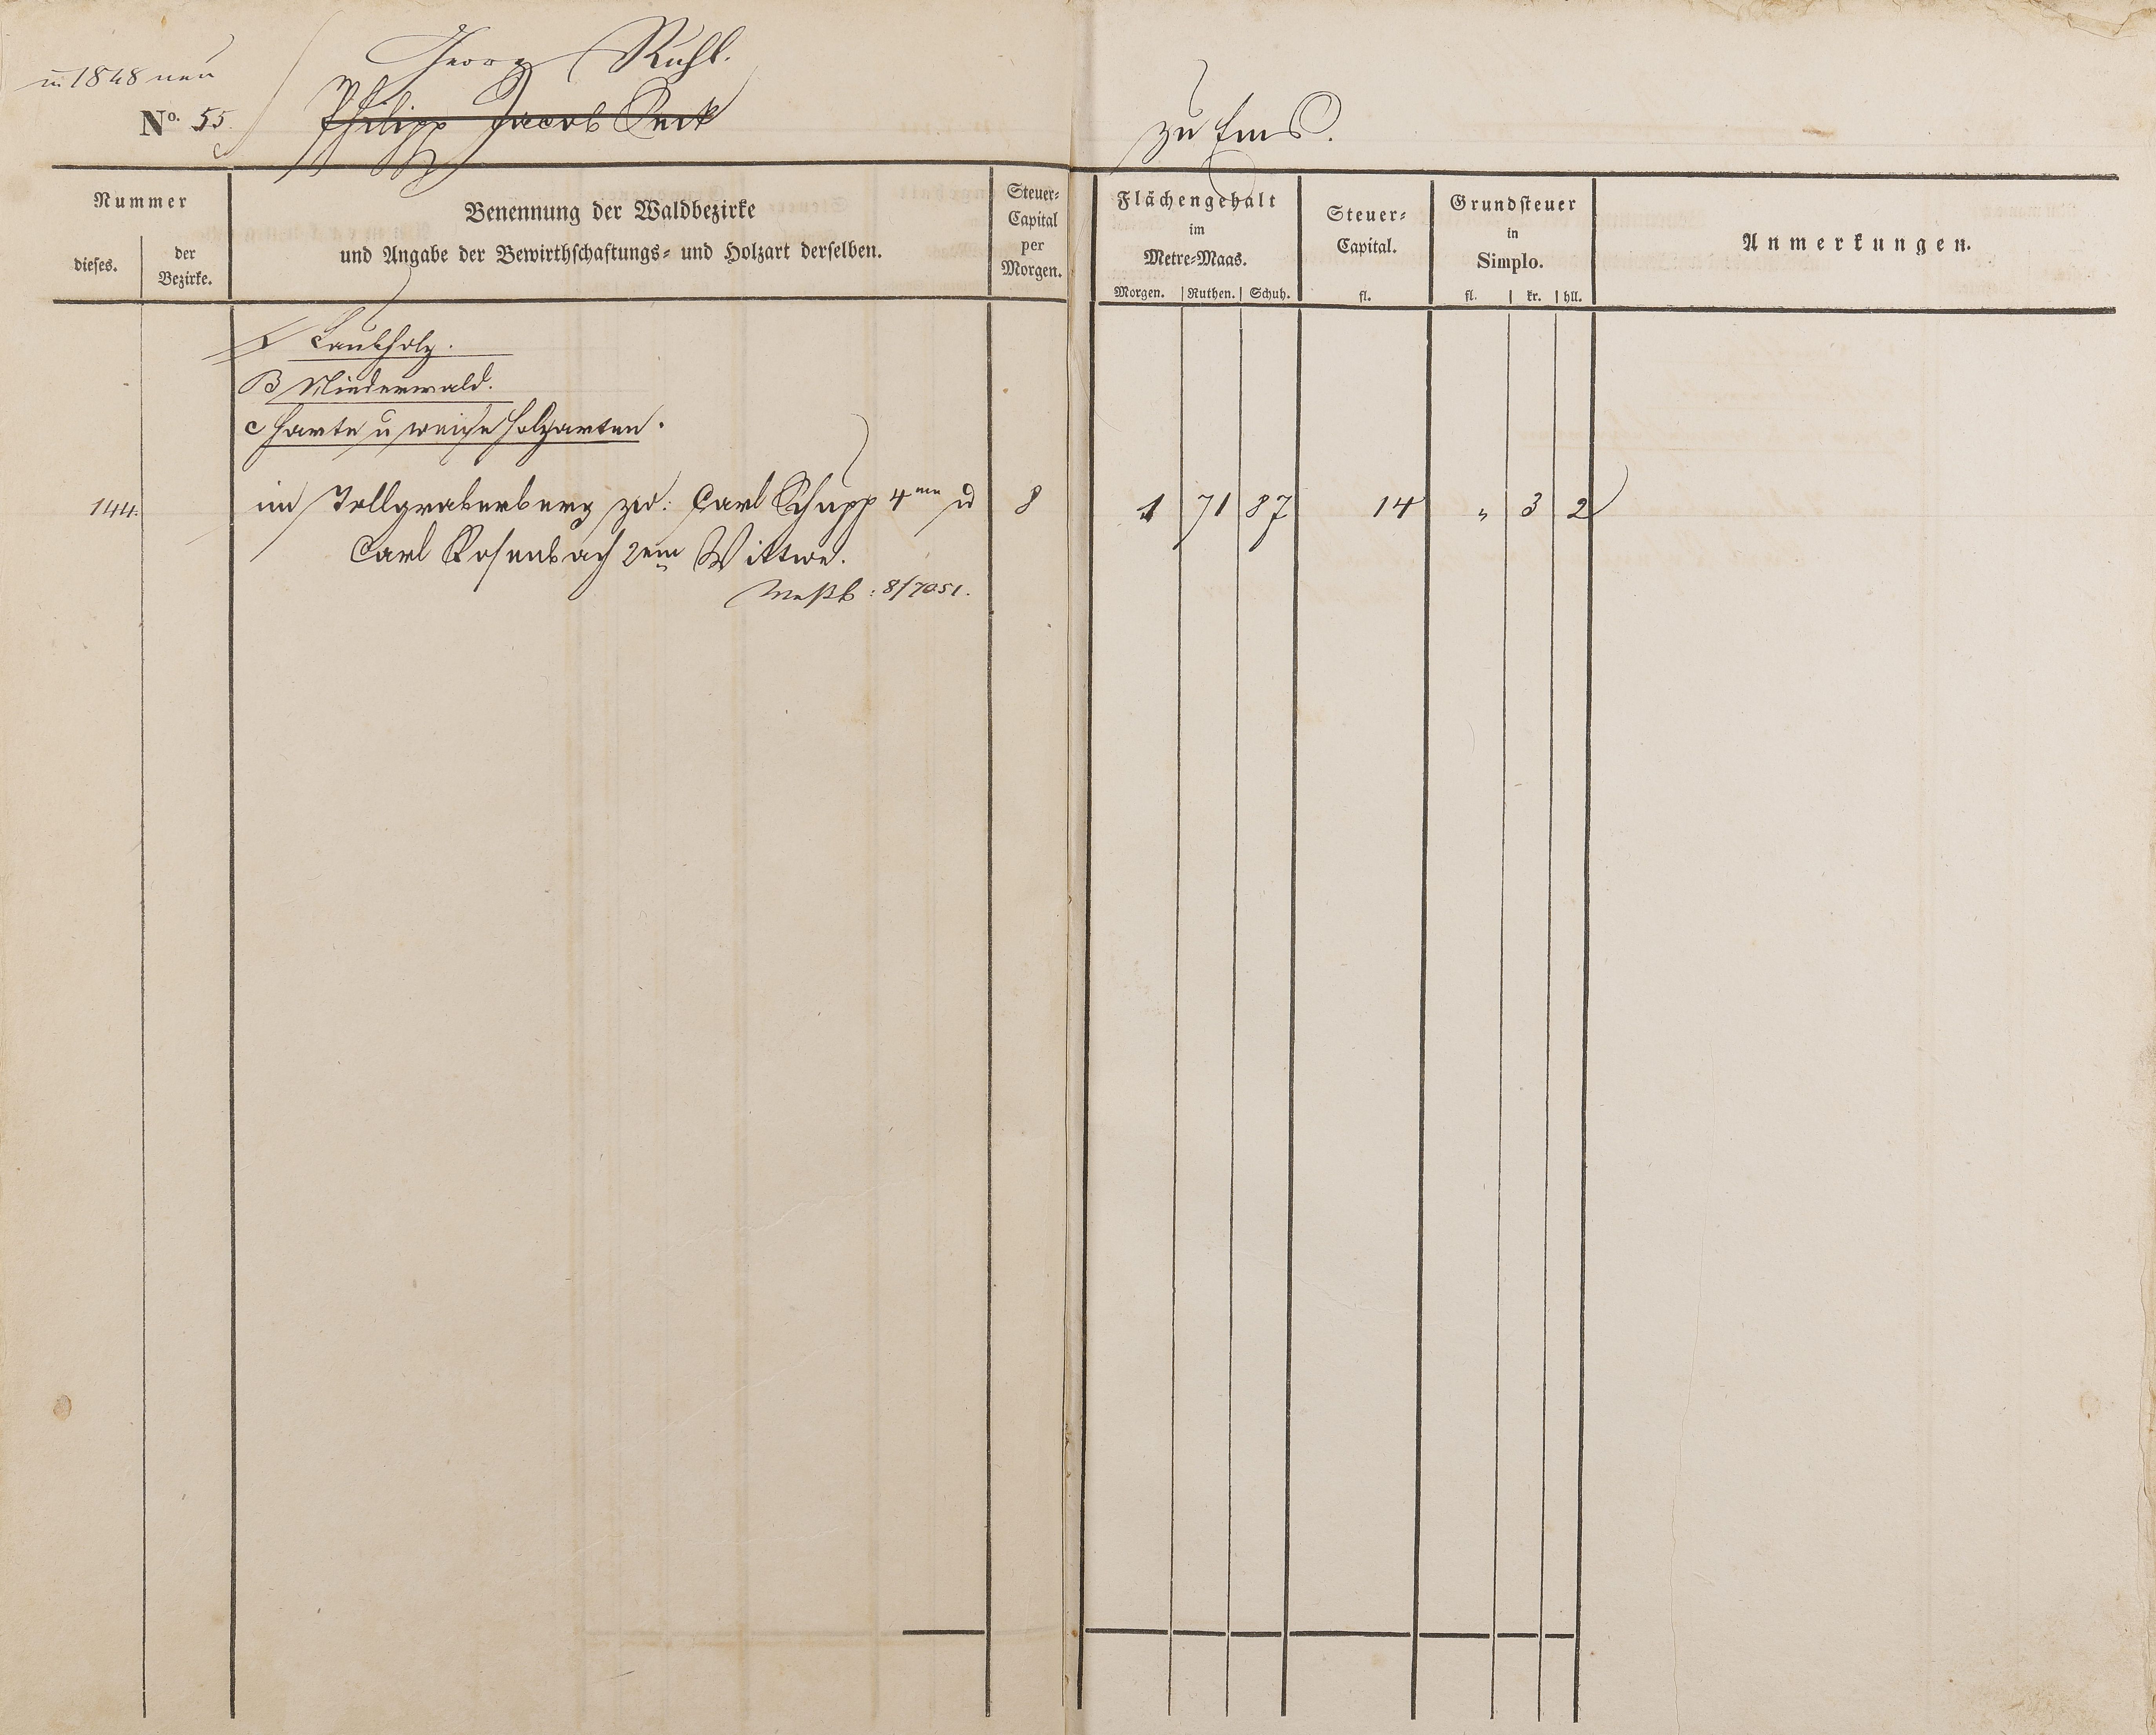 in 1848 neu
Georg Ruhl.
No. 55.
Philipp Jacob Seck
zu Ems.
Nummer
dieses.
der
Bezirke.
Benennung der Waldbezirke
und Angabe der Bewirthschaftungs- und Holzart derselben.
Steuer-
Capital
per
Morgen.
Flächengehalt
im
Metre-Maas.
Morgen. Ruthen. Schuh.
Steuer-
Capital.
fl.
Grundsteuer
in
Simplo.
fl. kr. hll.
Anmerkungen.
Laubholz.
B Niederwald.
c Harte u weiche Holzarten.
144. im zw: Carl Schupp 4ten u 8 1 71 87 14 " 3 2
Carl Rosenbach 2ten Wittwe.
Meßb: 8/7051.